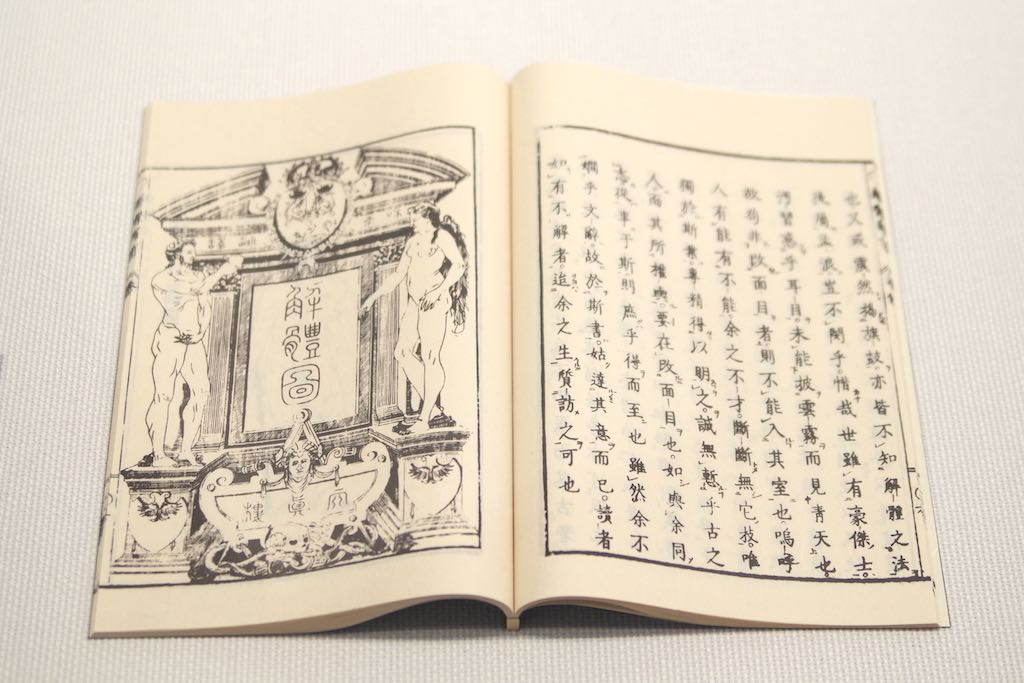 也又或靡然揚旗鼓亦皆不知解體之法
徒屬孟浪豈不闇乎。惜哉世雖有豪傑士。
汚習惑乎耳目。未能披雲霧而見青天也。
故苟非改面目者。則不能入其室也。嗚呼
人有能有不能。余之不才。斷斷無它技。唯
獨於斯業。專精得以明之。誠無慙乎古之
人。而其所權輿。要在改面目也。如與余同
志從事于斯。則庶乎得而至也。雖然余不
嫻乎文辭。故於斯書。姑達其意而已。讀者
如有不解者。迨余之生。質訪之可也
解體圖
天真樓